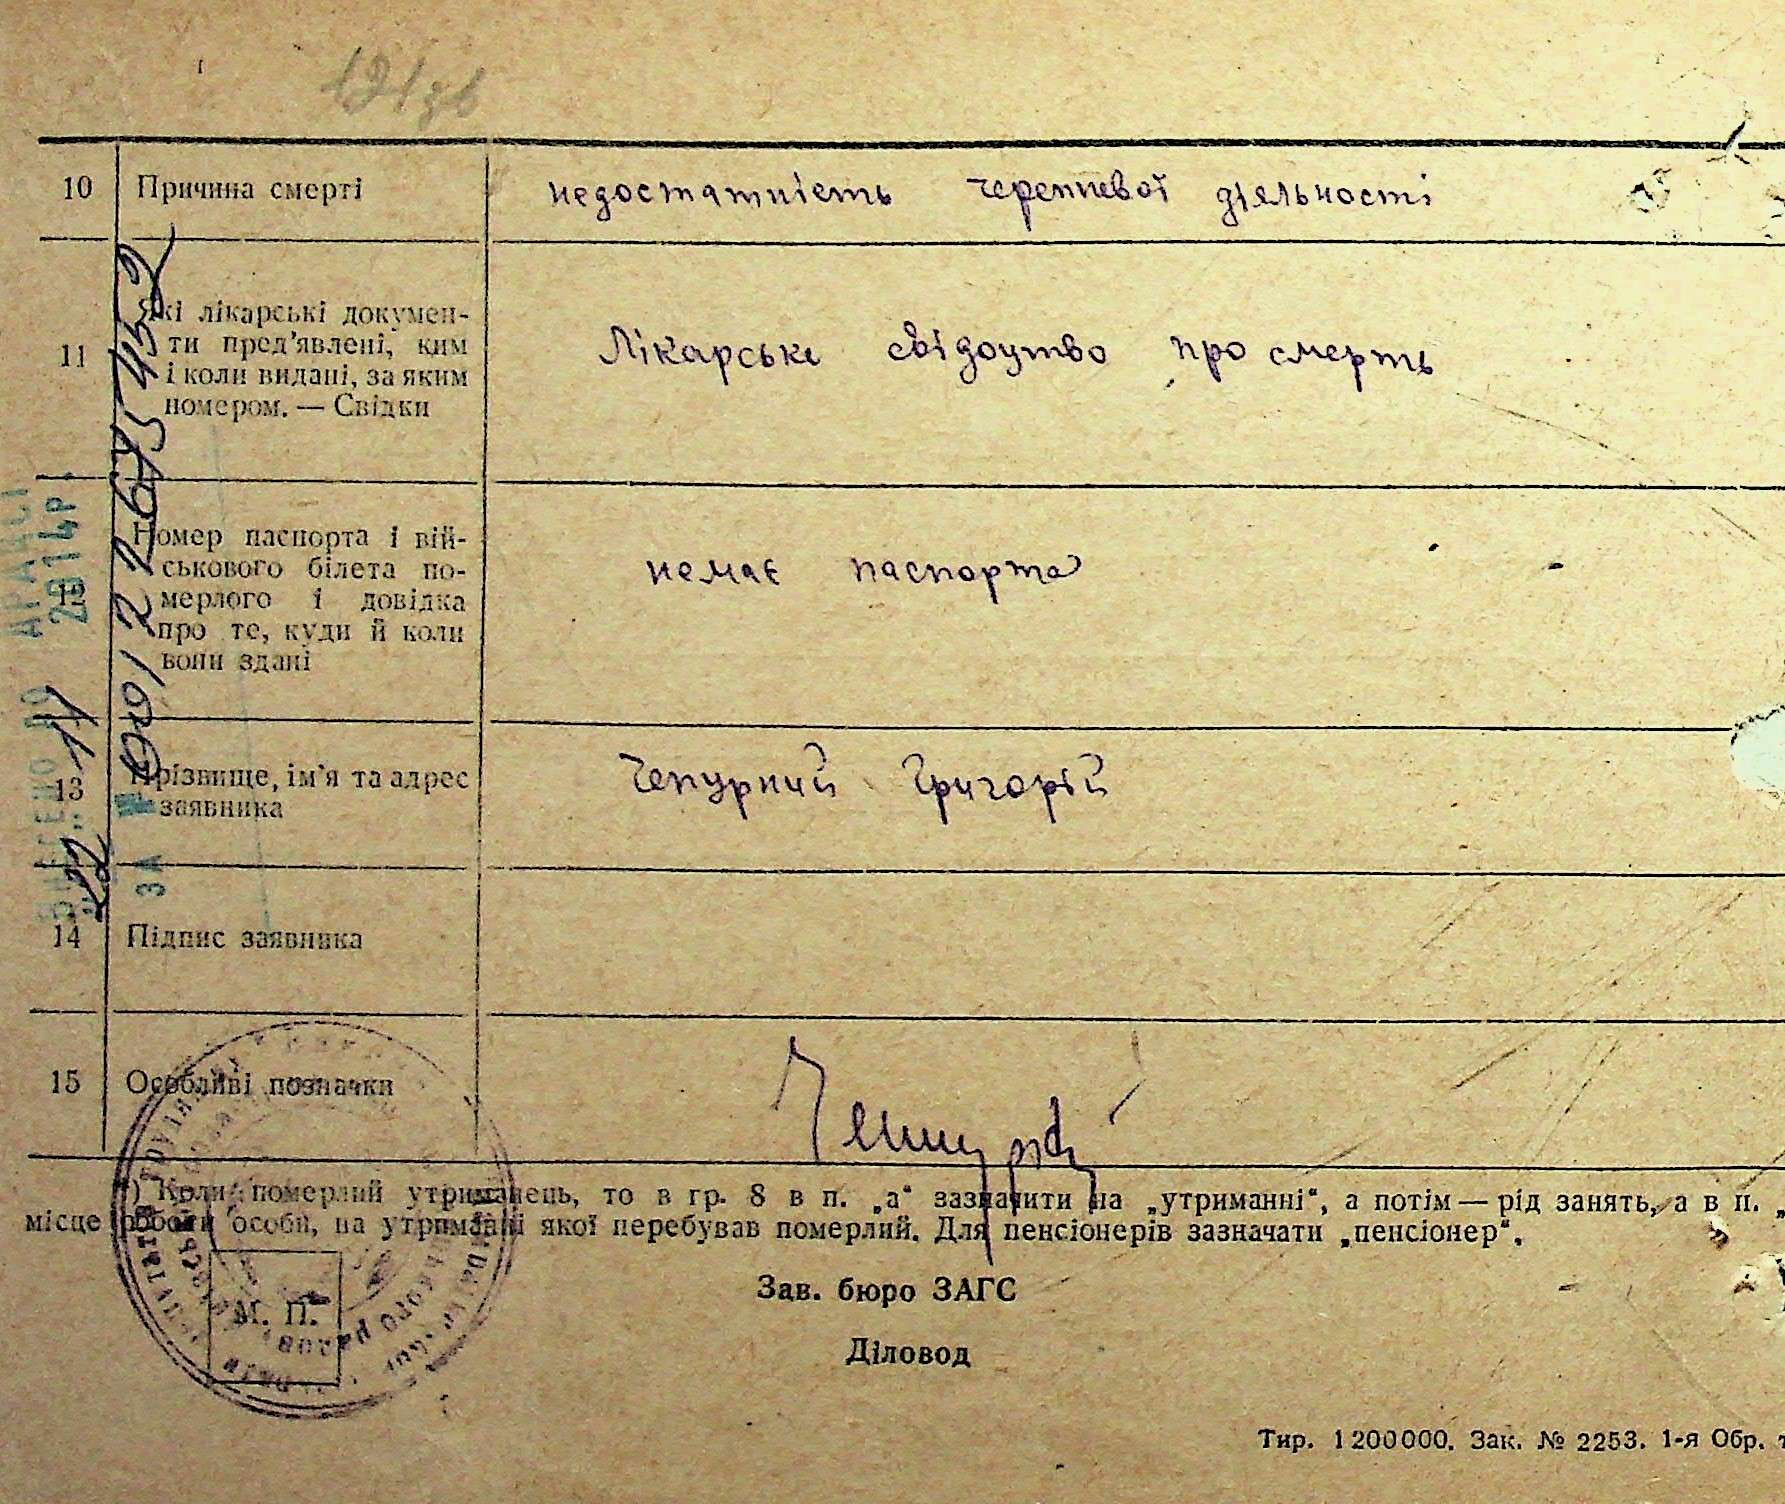 10 Причина смерті недостатність черепневої діяльності
11 Які лікарські докумен-
ти пред’явлені, ким
і коли видані, за яким
номером. — Свідки
Лікарське свідоцтво про смерть
12 Номер паспорта і вій-
ськового білета по-
мерлого і довідка
про те, куди й коли
вони здані
немає паспорта
13 Прізвище, ім’я та адрес
заявника
Чепурний Григорій
14 Підпис заявника
15 Особливі позначки
*) Коли померлий утриманець, то в гр. 8 в п. „а“ зазначити на „утриманні“, а потім — рід занять, а в п. „
місце роботи особи, на утриманні якої перебував померлий. Для пенсіонерів зазначати „пенсіонер“.
Зав. бюро ЗАГС
М. П.
Діловод
Тир. 1200000. Зак. № 2253. 1-я Обр. т
ДО
2014р.
22 11
ЗА №